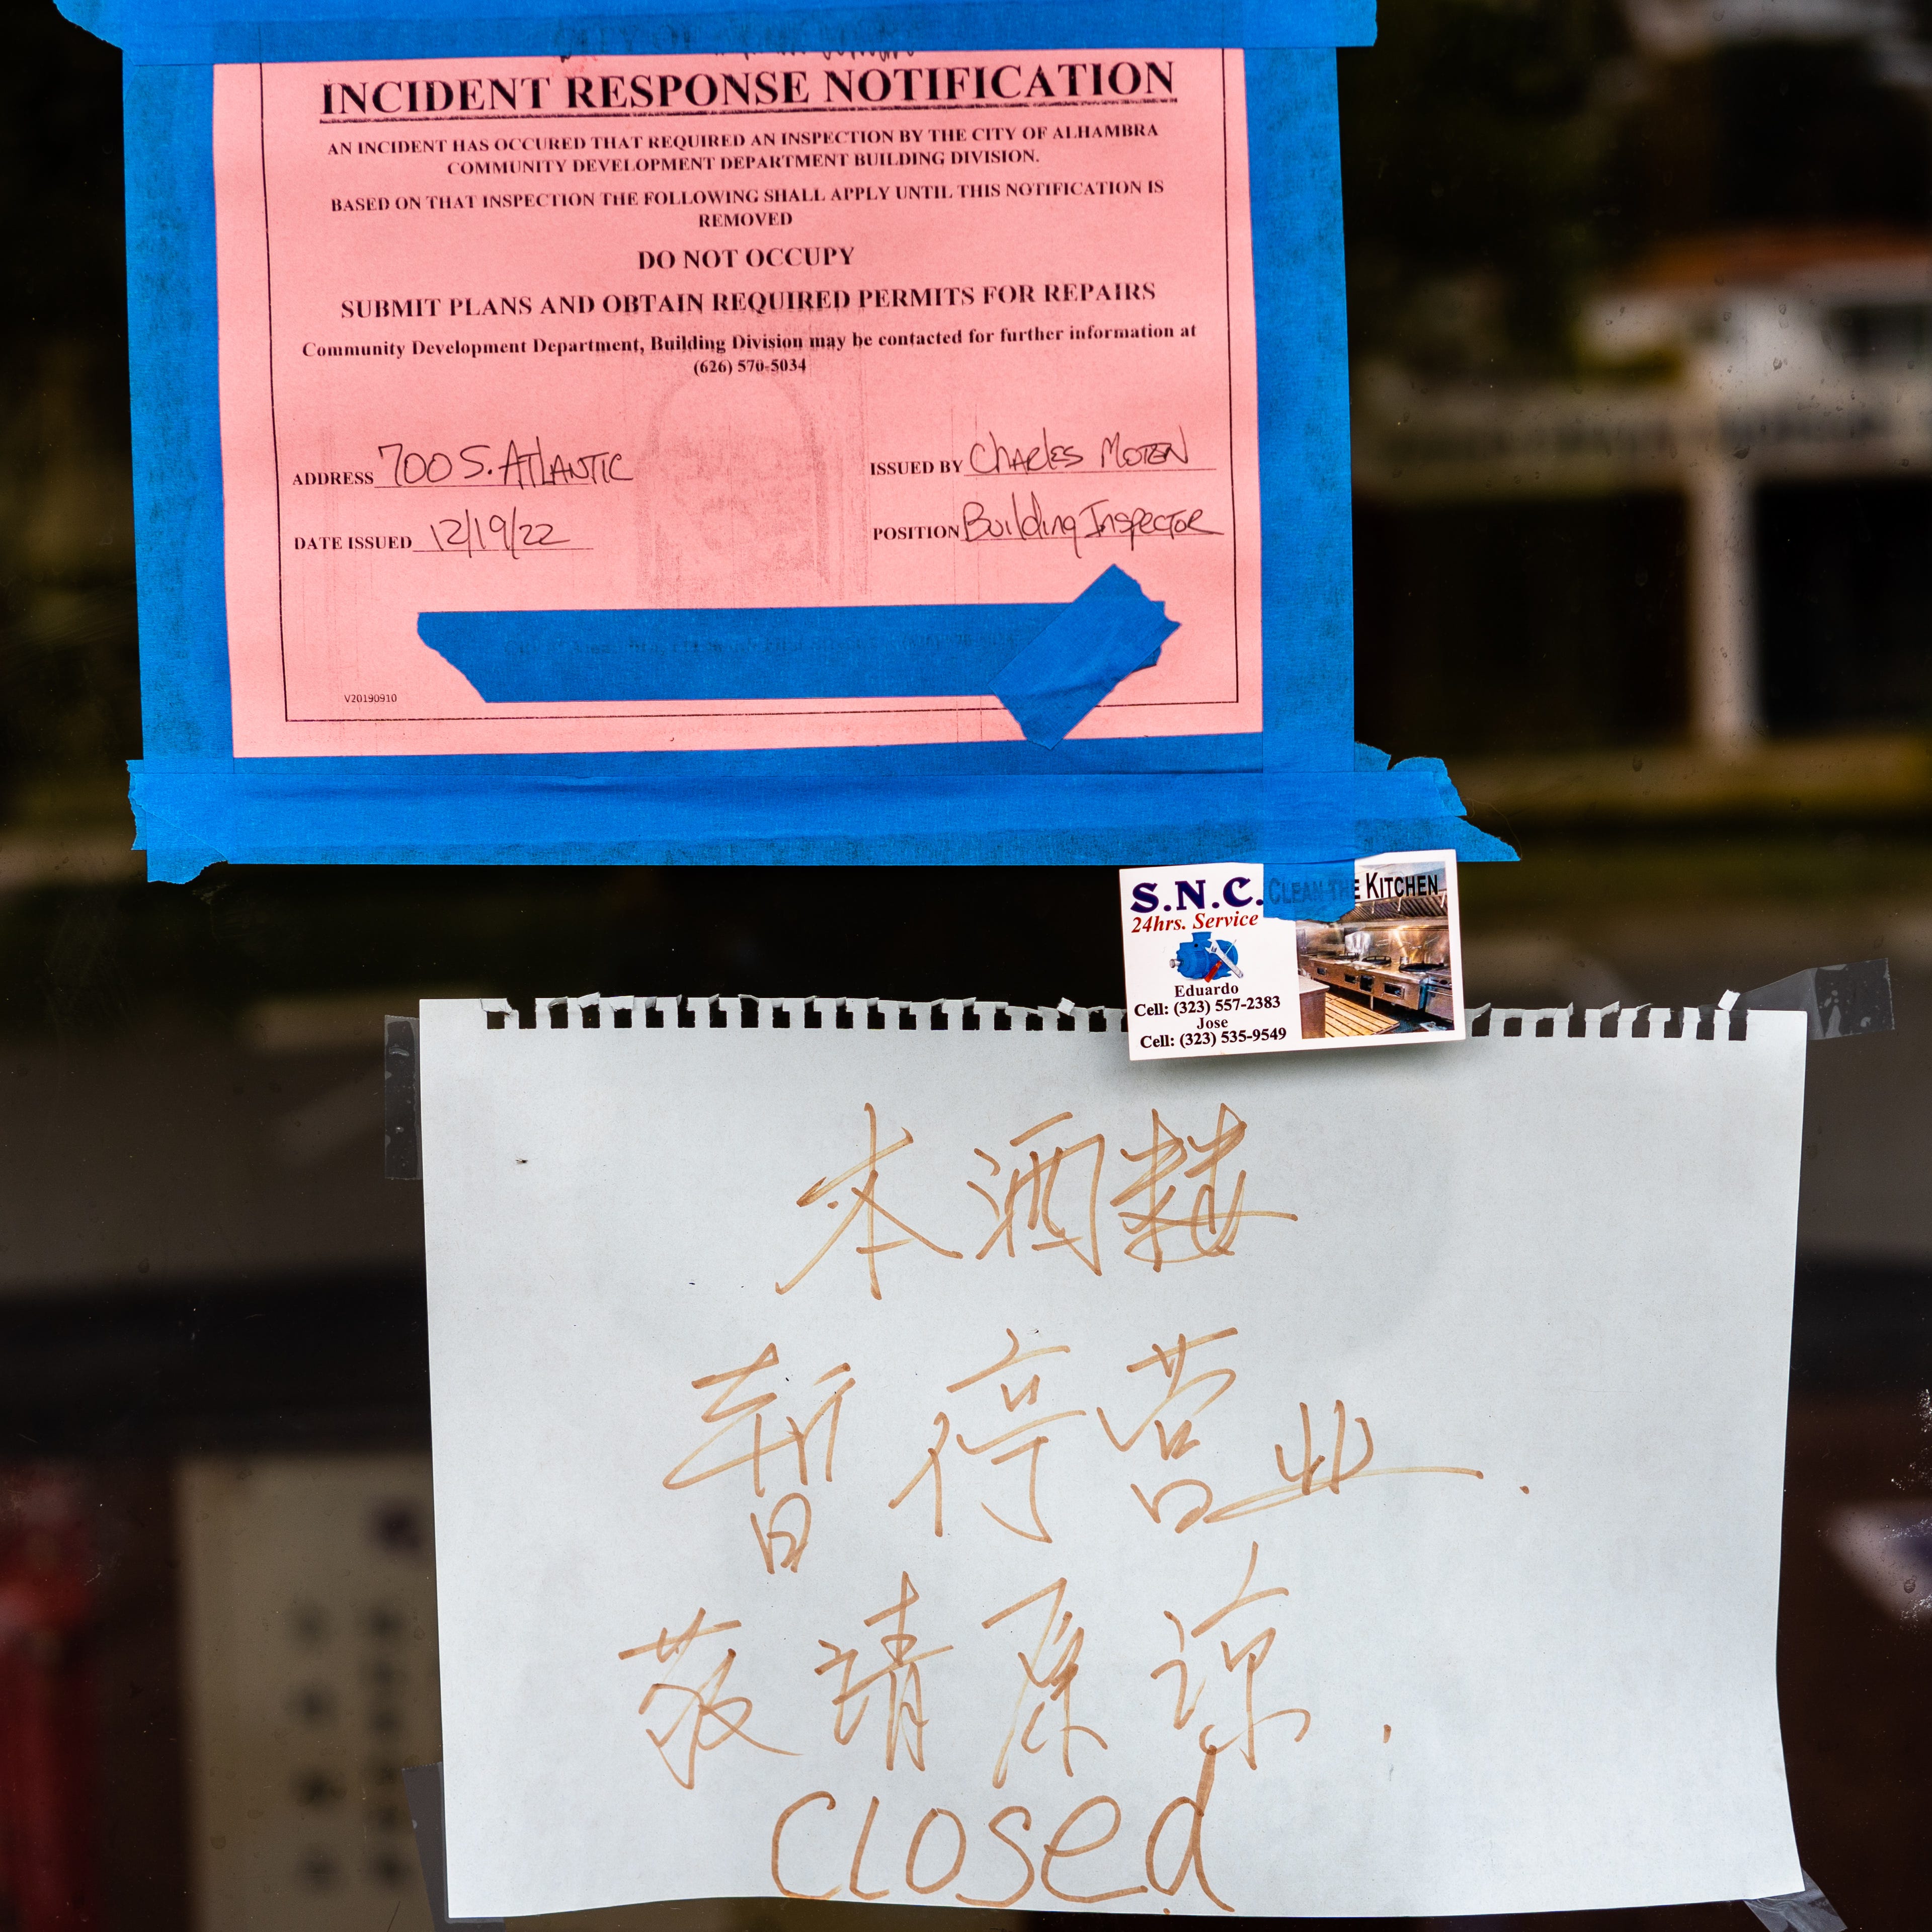 INCIDENT RESPONSE NOTIFICATION
AN INCIDENT HAS OCCURED THAT REQUIRED AN INSPECTION BY THE CITY OF ALHAMBRA
COMMUNITY DEVELOPMENT DEPARTMENT BUILDING DIVISION.
BASED ON THAT INSPECTION THE FOLLOWING SHALL APPLY UNTIL THIS NOTIFICATION IS
REMOVED
DO NOT OCCUPY
SUBMIT PLANS AND OBTAIN REQUIRED PERMITS FOR REPAIRS
Community Development Department, Building Division may be contacted for further information at
(626) 570-5034
ADDRESS 700 S. ATLANTIC
ISSUED BY Charles Moten
DATE ISSUED 12/19/22
POSITION Building Inspector
V20190910
S.N.C.
CLEAN THE KITCHEN
24hrs. Service
Eduardo
Cell: (323) 557-2383
Jose
Cell: (323) 535-9549
本酒楼
暂停营业.
敬请原谅.
Closed